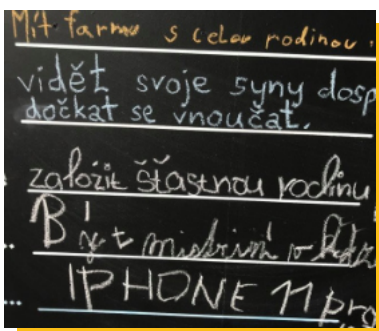 Mít farmu s celou rodinou.
vidět svoje syny dosp
dočkat se vnoučat.
založit šťastnou rodinu
... Být v
... IPHONE 11 pro